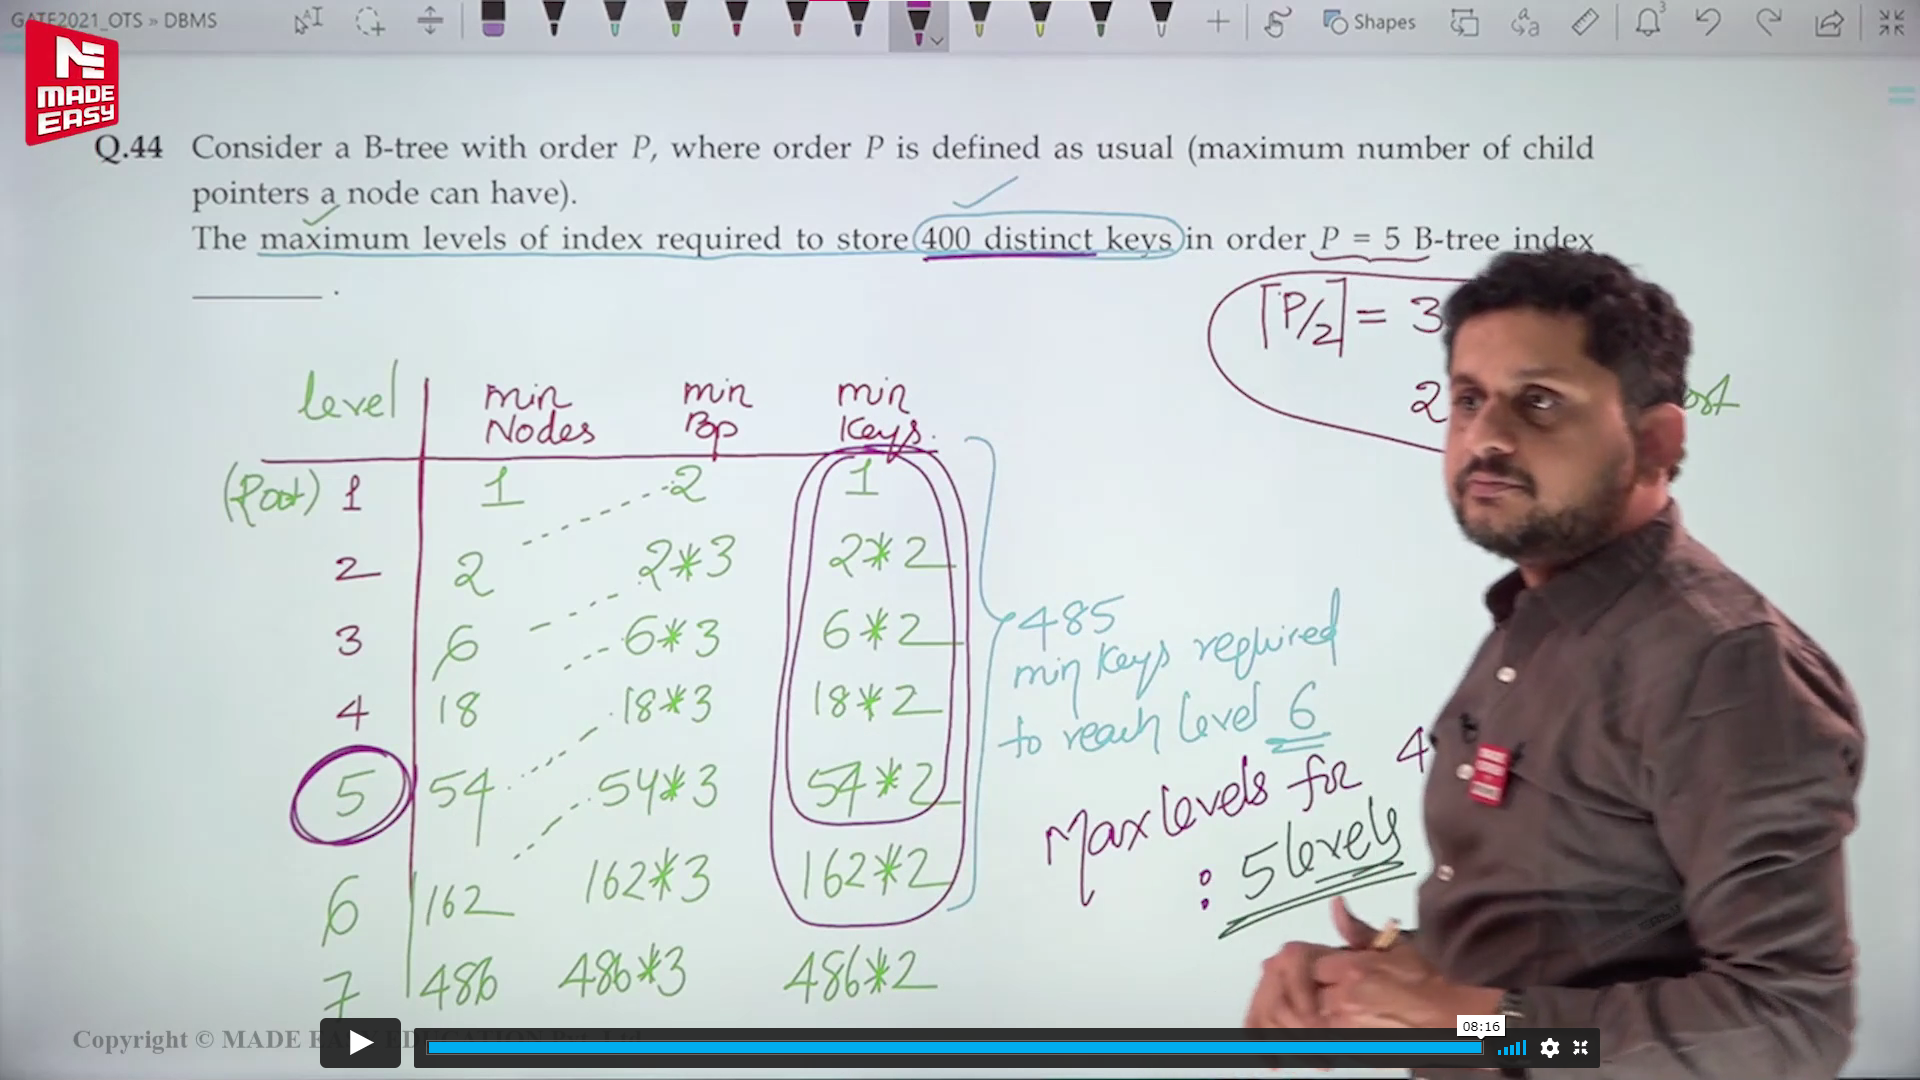 GATE2021_OTS » DBMS
Shapes
3
MADE
EASY
Q.44 Consider a B-tree with order P, where order P is defined as usual (maximum number of child
pointers a node can have).
The maximum levels of index required to store 400 distinct keys in order P = 5 B-tree index
__________ .
⌈P/2⌉ = 3
2
level min Nodes min Bp min Keys.
(Root) 1 1 2 1
2 2 2*3 2*2
3 6 6*3 6*2
4 18 18*3 18*2
5 54 54*3 54*2
6 162 162*3 162*2
7 486 486*3 486*2
485
min keys required
to reach level 6
Max levels for 4
: 5 levels
Copyright © MADE
08:16